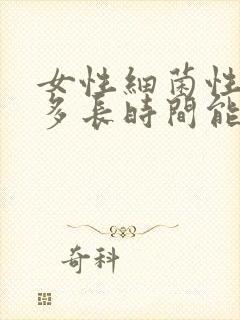 女性細菌性
多長時間能
奇科